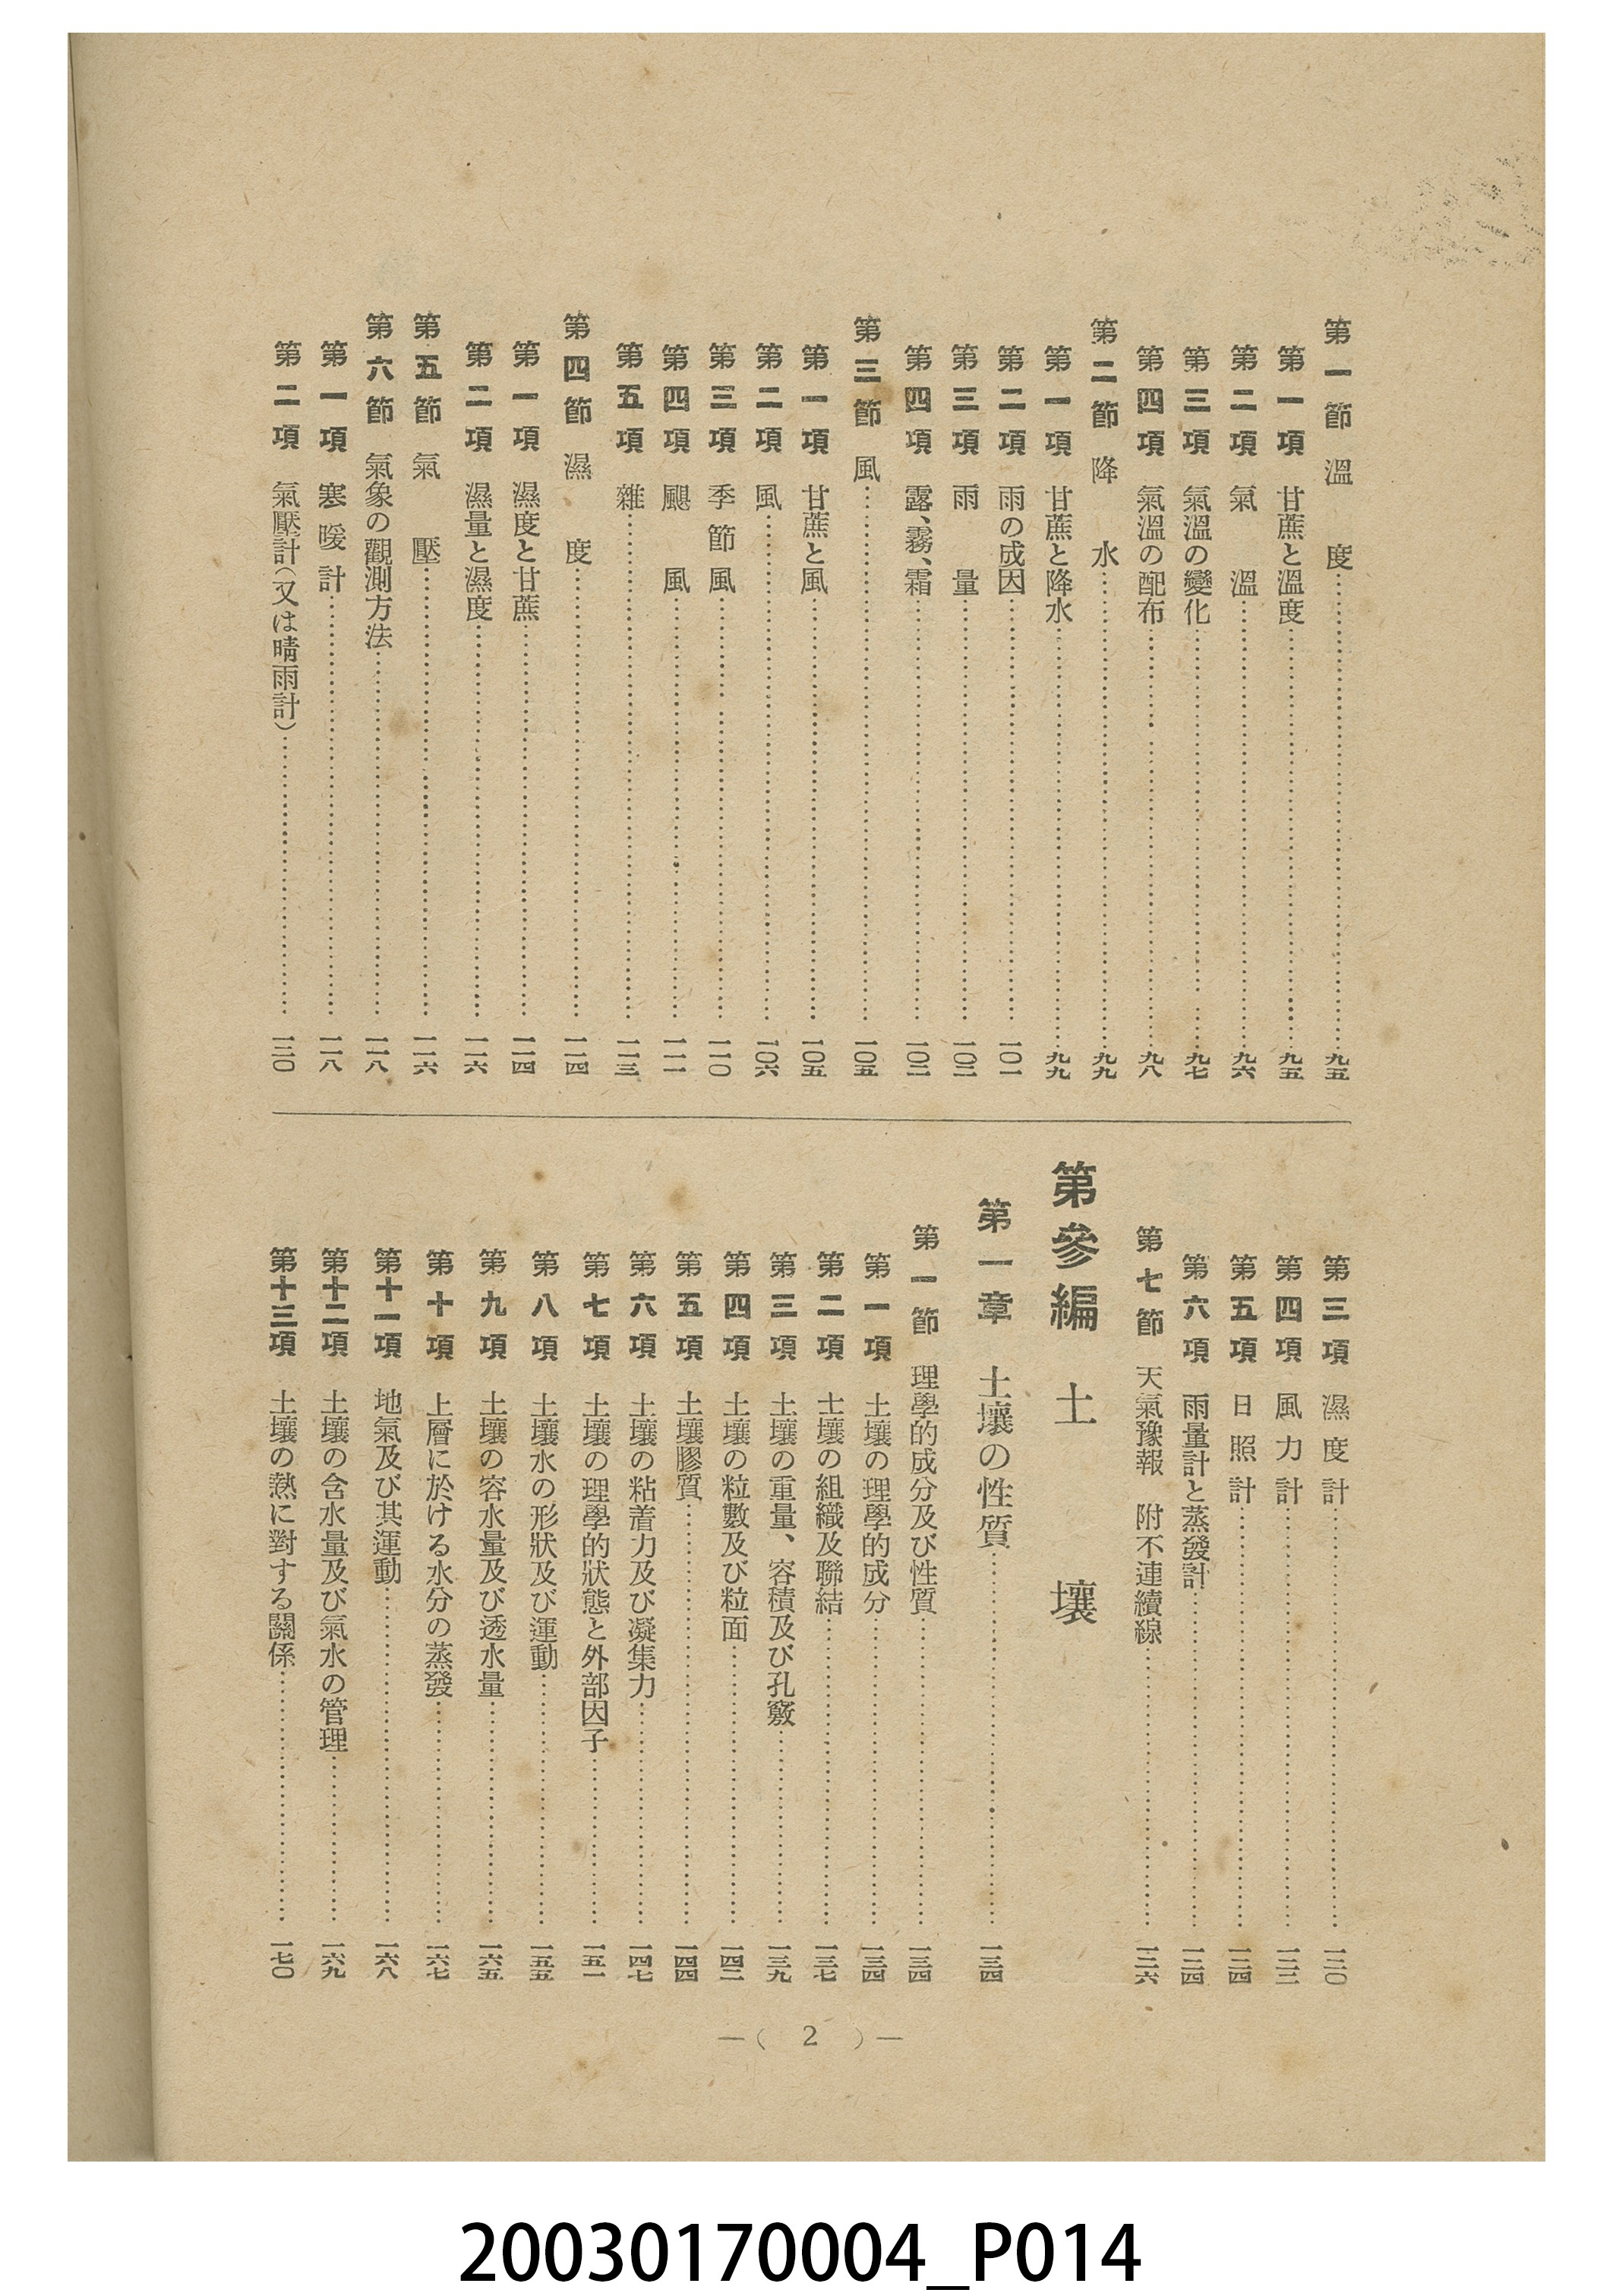 第一節 溫度……九五
第一項 甘蔗と溫度……九五
第二項 氣溫……九六
第三項 氣溫の變化……九七
第四項 氣溫の配布……九八
第二節 降水……九九
第一項 甘蔗と降水……九九
第二項 雨の成因……一〇一
第三項 雨量……一〇二
第四項 露、霧、霜……一〇二
第三節 風……一〇五
第一項 甘蔗と風……一〇五
第二項 風……一〇六
第三項 季節風……一一〇
第四項 颶風……一一一
第五項 雜……一一三
第四節 濕度……一一四
第一項 濕度と甘蔗……一一四
第二項 濕量と濕度……一一六
第五節 氣壓……一一六
第六節 氣象の觀測方法……一一八
第一項 寒暖計……一一八
第二項 氣壓計(又は晴雨計)……一二〇
第三項 濕度計……一二〇
第四項 風力計……一二二
第五項 日照計……一二四
第六項 雨量計と蒸發計……一二四
第七節 天氣豫報 附不連續線……一二六
第參編 土壤
第一章 土壤の性質……一三四
第一節 理學的成分及び性質……一三四
第一項 土壤の理學的成分……一三四
第二項 土壤の組織及聯結……一三七
第三項 土壤の重量、容積及び孔竅……一三九
第四項 土壤の粒數及び粒面……一四二
第五項 土壤膠質……一四四
第六項 土壤の粘着力及び凝集力……一四七
第七項 土壤の理學的狀態と外部因子……一五一
第八項 土壤水の形狀及び運動……一五五
第九項 土壤の容水量及び透水量……一六五
第十項 上層に於ける水分の蒸發……一六七
第十一項 地氣及び其運動……一六八
第十二項 土壤の含水量及び氣水の管理……一六九
第十三項 土壤の熱に對する關係……一七〇
—( 2 )—
20030170004_P014